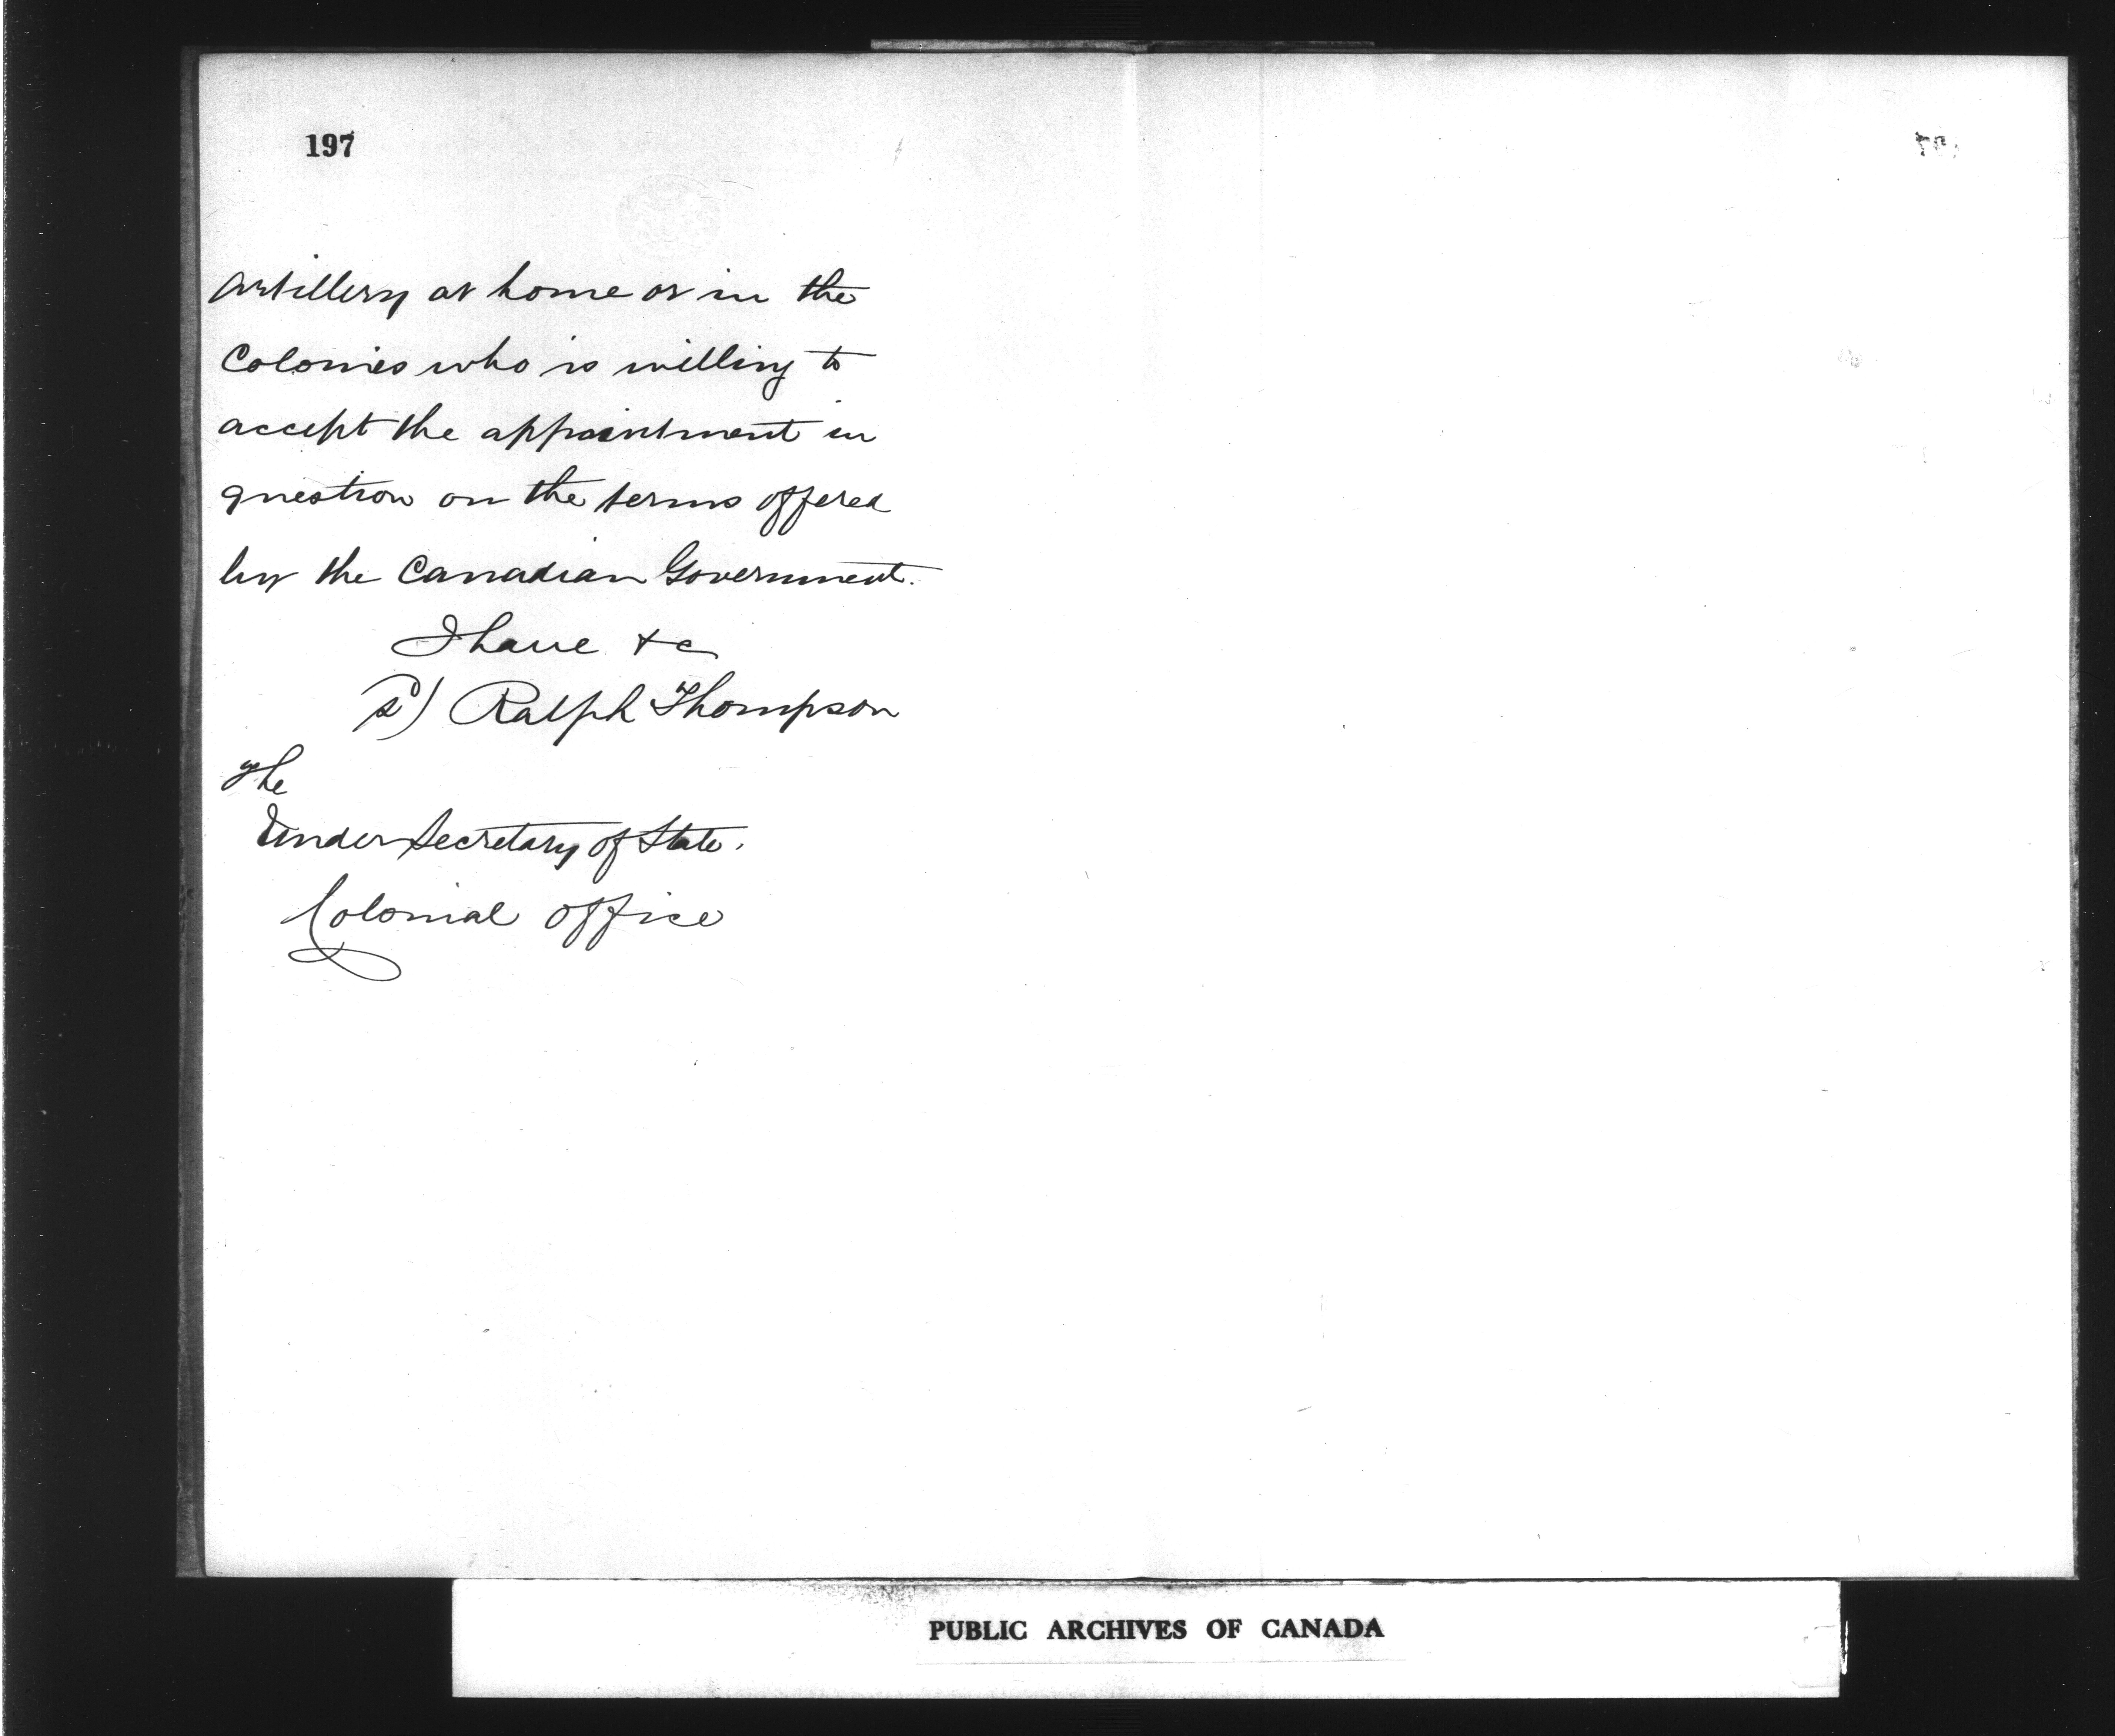 197
Artillery at home or in the
Colonies who is willing to
accept the appointment in
question on the terms offered
by the Canadian Government.
I have &c
Ralph Thompson
The
Under Secretary of State.
Colonial Office
PUBLIC ARCHIVES OF CANADA